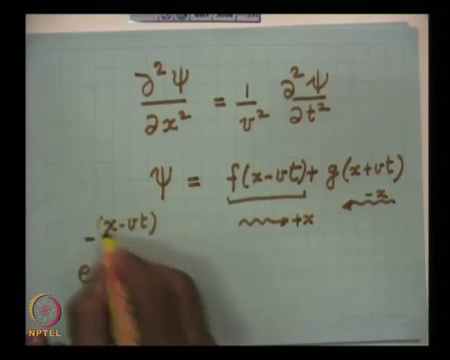 ∂²Ψ/∂x² = 1/v² ∂²Ψ/∂t²
Ψ = f(x-vt) + g(x+vt)
→ +x
← -x
e^-(x-vt)
NPTEL